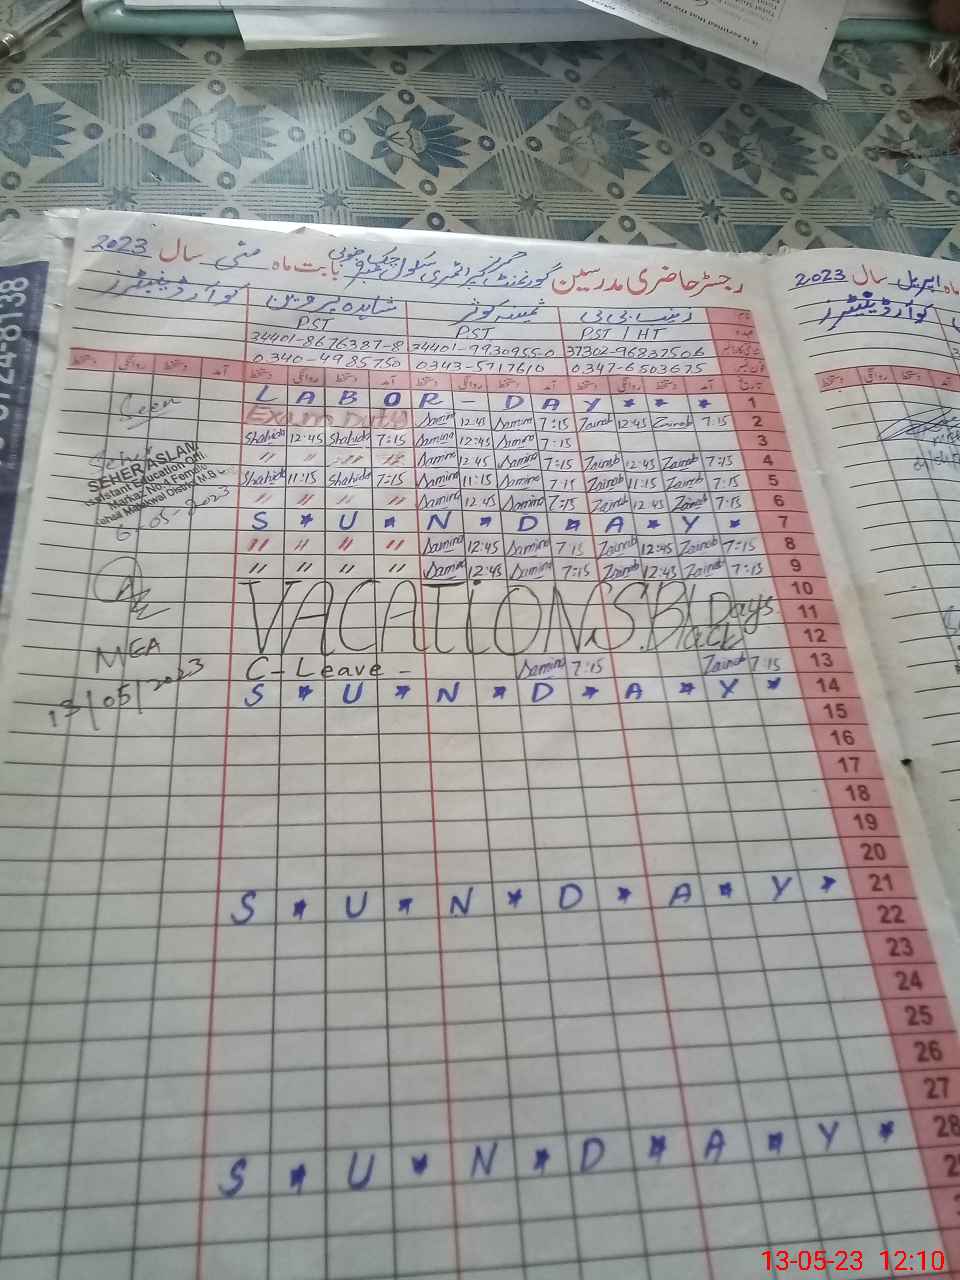 رجسٹر حاضری مدرسین گورنمنٹ گرلز پرائمری سکول چک نمبر جنوبی بابت ماہ مئی سال 2023
ماہ اپریل سال 2023
زینب بی بی ثمینہ کوثر شاہدہ پروین کوآرڈینیٹرز
کوآرڈینیٹرز
PST / HT PST PST
37302-9683750 6 34401-9930955-0 34401-8676387-8
0347-6503675 0343-5717610 0340-4985750
تاریخ آمد دستخط روانگی دستخط آمد دستخط روانگی دستخط آمد دستخط روانگی دستخط آمد دستخط روانگی دستخط
L A B O R - D A Y * * * 1
Seen
Exam Duty Samina 12:45 Samina 7:15 Zainab 12:45 Zainab 7:15 2
Shahida 12:45 Shahida 7:15 Samina 12:45 Samina 7:15 3
" " " " Samina 12:45 Samina 7:15 Zainab 12:45 Zainab 7:15 4
Shahida 11:15 Shahida 7:15 Samina 11:15 Samina 7:15 Zainab 11:15 Zainab 7:15 5
" " " " Samina 12:45 Samina 7:15 Zainab 12:45 Zainab 7:15 6
SEHER ASLAM
Assistant Education Offi
Markaz No.1 Female
Tehsil Malakwal Distt M.B.
6-05-2023
S * U * N * D * A * Y * 7
" " " " Samina 12:45 Samina 7:15 Zainab 12:45 Zainab 7:15 8
" " " " Samina 12:45 Samina 7:15 Zainab 12:45 Zainab 7:15 9
10
VACATIONS. Black Days 11
12
MEA
13/05/2023
C-Leave - Samina 7:15 Zainab 7:15 13
S * U * N * D * A * Y * 14
15
16
17
18
19
20
S * U * N * D * A * Y * 21
22
23
24
25
26
27
S * U * N * D * A * Y * 28
13-05-23 12:10